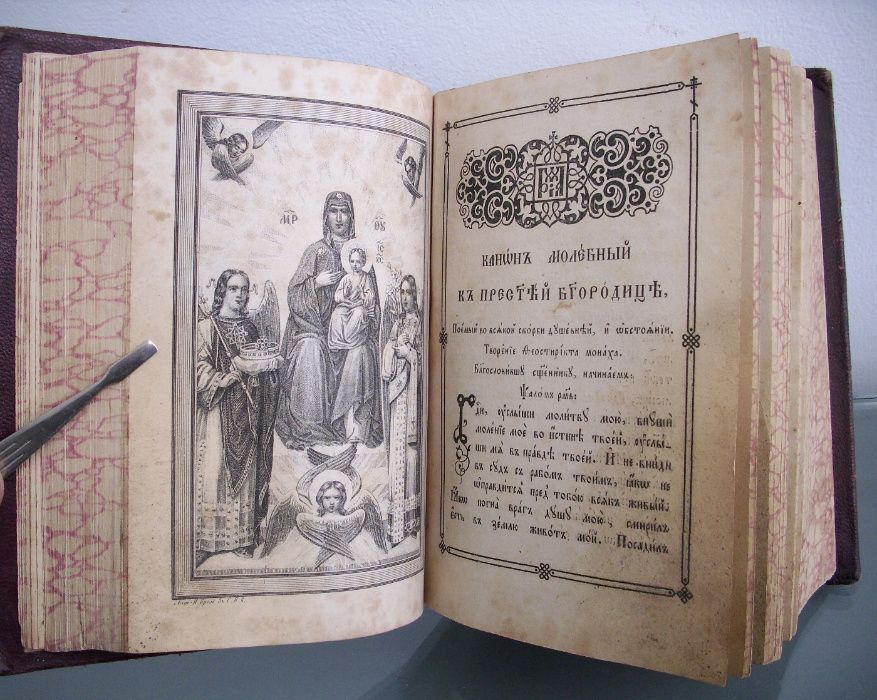 МР ѲУ
ІС ХС
КАНѠ́НЪ МОЛЕ́БНЫЙ
КЪ ПРЕСТѢ́Й БГОРО́ДИЦѢ,
Пое́мый во всѧ́кой ско́рби дꙋше́внѣй, и҆ ѡ҆бстоѧ́нїи.
Творе́нїе Ѳеостирі́кта мона́ха.
Бл҃гослови́вшꙋ сщ҃е́нникꙋ, начина́емъ:
Ѱало́мъ рм҃в:
Гдⷭ҇и, ᲂу҆слы́ши моли́твꙋ мою̀, внꙋшѝ
моле́нїе моѐ во и҆́стинѣ твое́й, ᲂу҆слы́-
ши мѧ̀ въ пра́вдѣ твое́й. И҆ не вни́ди
въ сꙋ́дъ съ рабо́мъ твои́мъ, ꙗ҆́кѡ не
ѡ҆правди́тсѧ пред̾ тобо́ю всѧ́къ живы́й.
Ꙗ҆́кѡ погна̀ вра́гъ дꙋ́шꙋ мою̀: смири́лъ
є҆́сть въ зе́млю живо́тъ мо́й. Посади́лъ